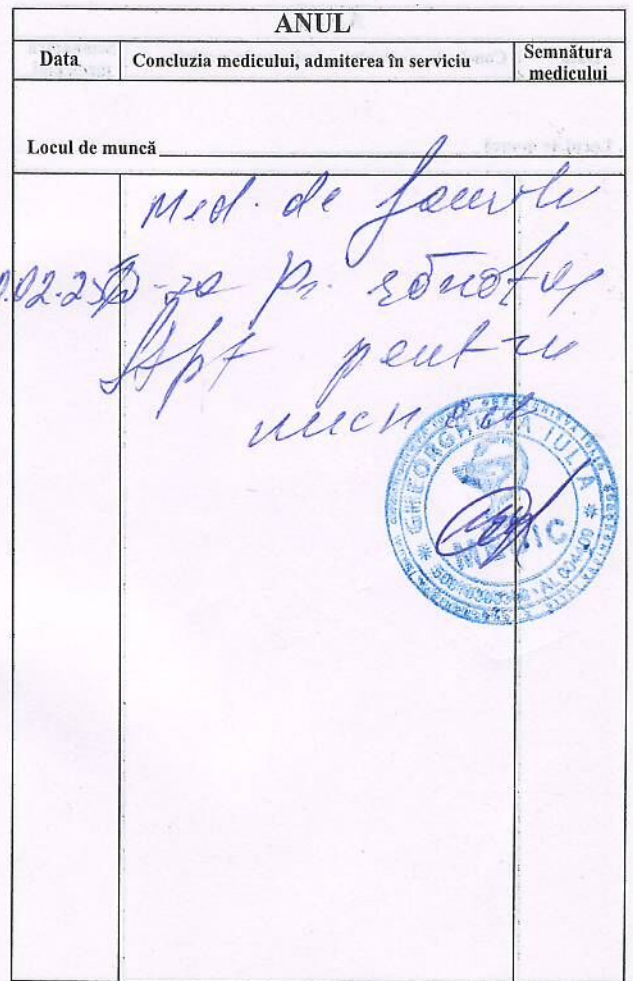 ANUL
Data
Concluzia medicului, admiterea în serviciu
Semnătura
medicului
Locul de muncă
Med. de familie
.02.23 D-za Pr. sănătos
Apt pentru
muncă
GHEORGHIEVA IULIA
MEDIC